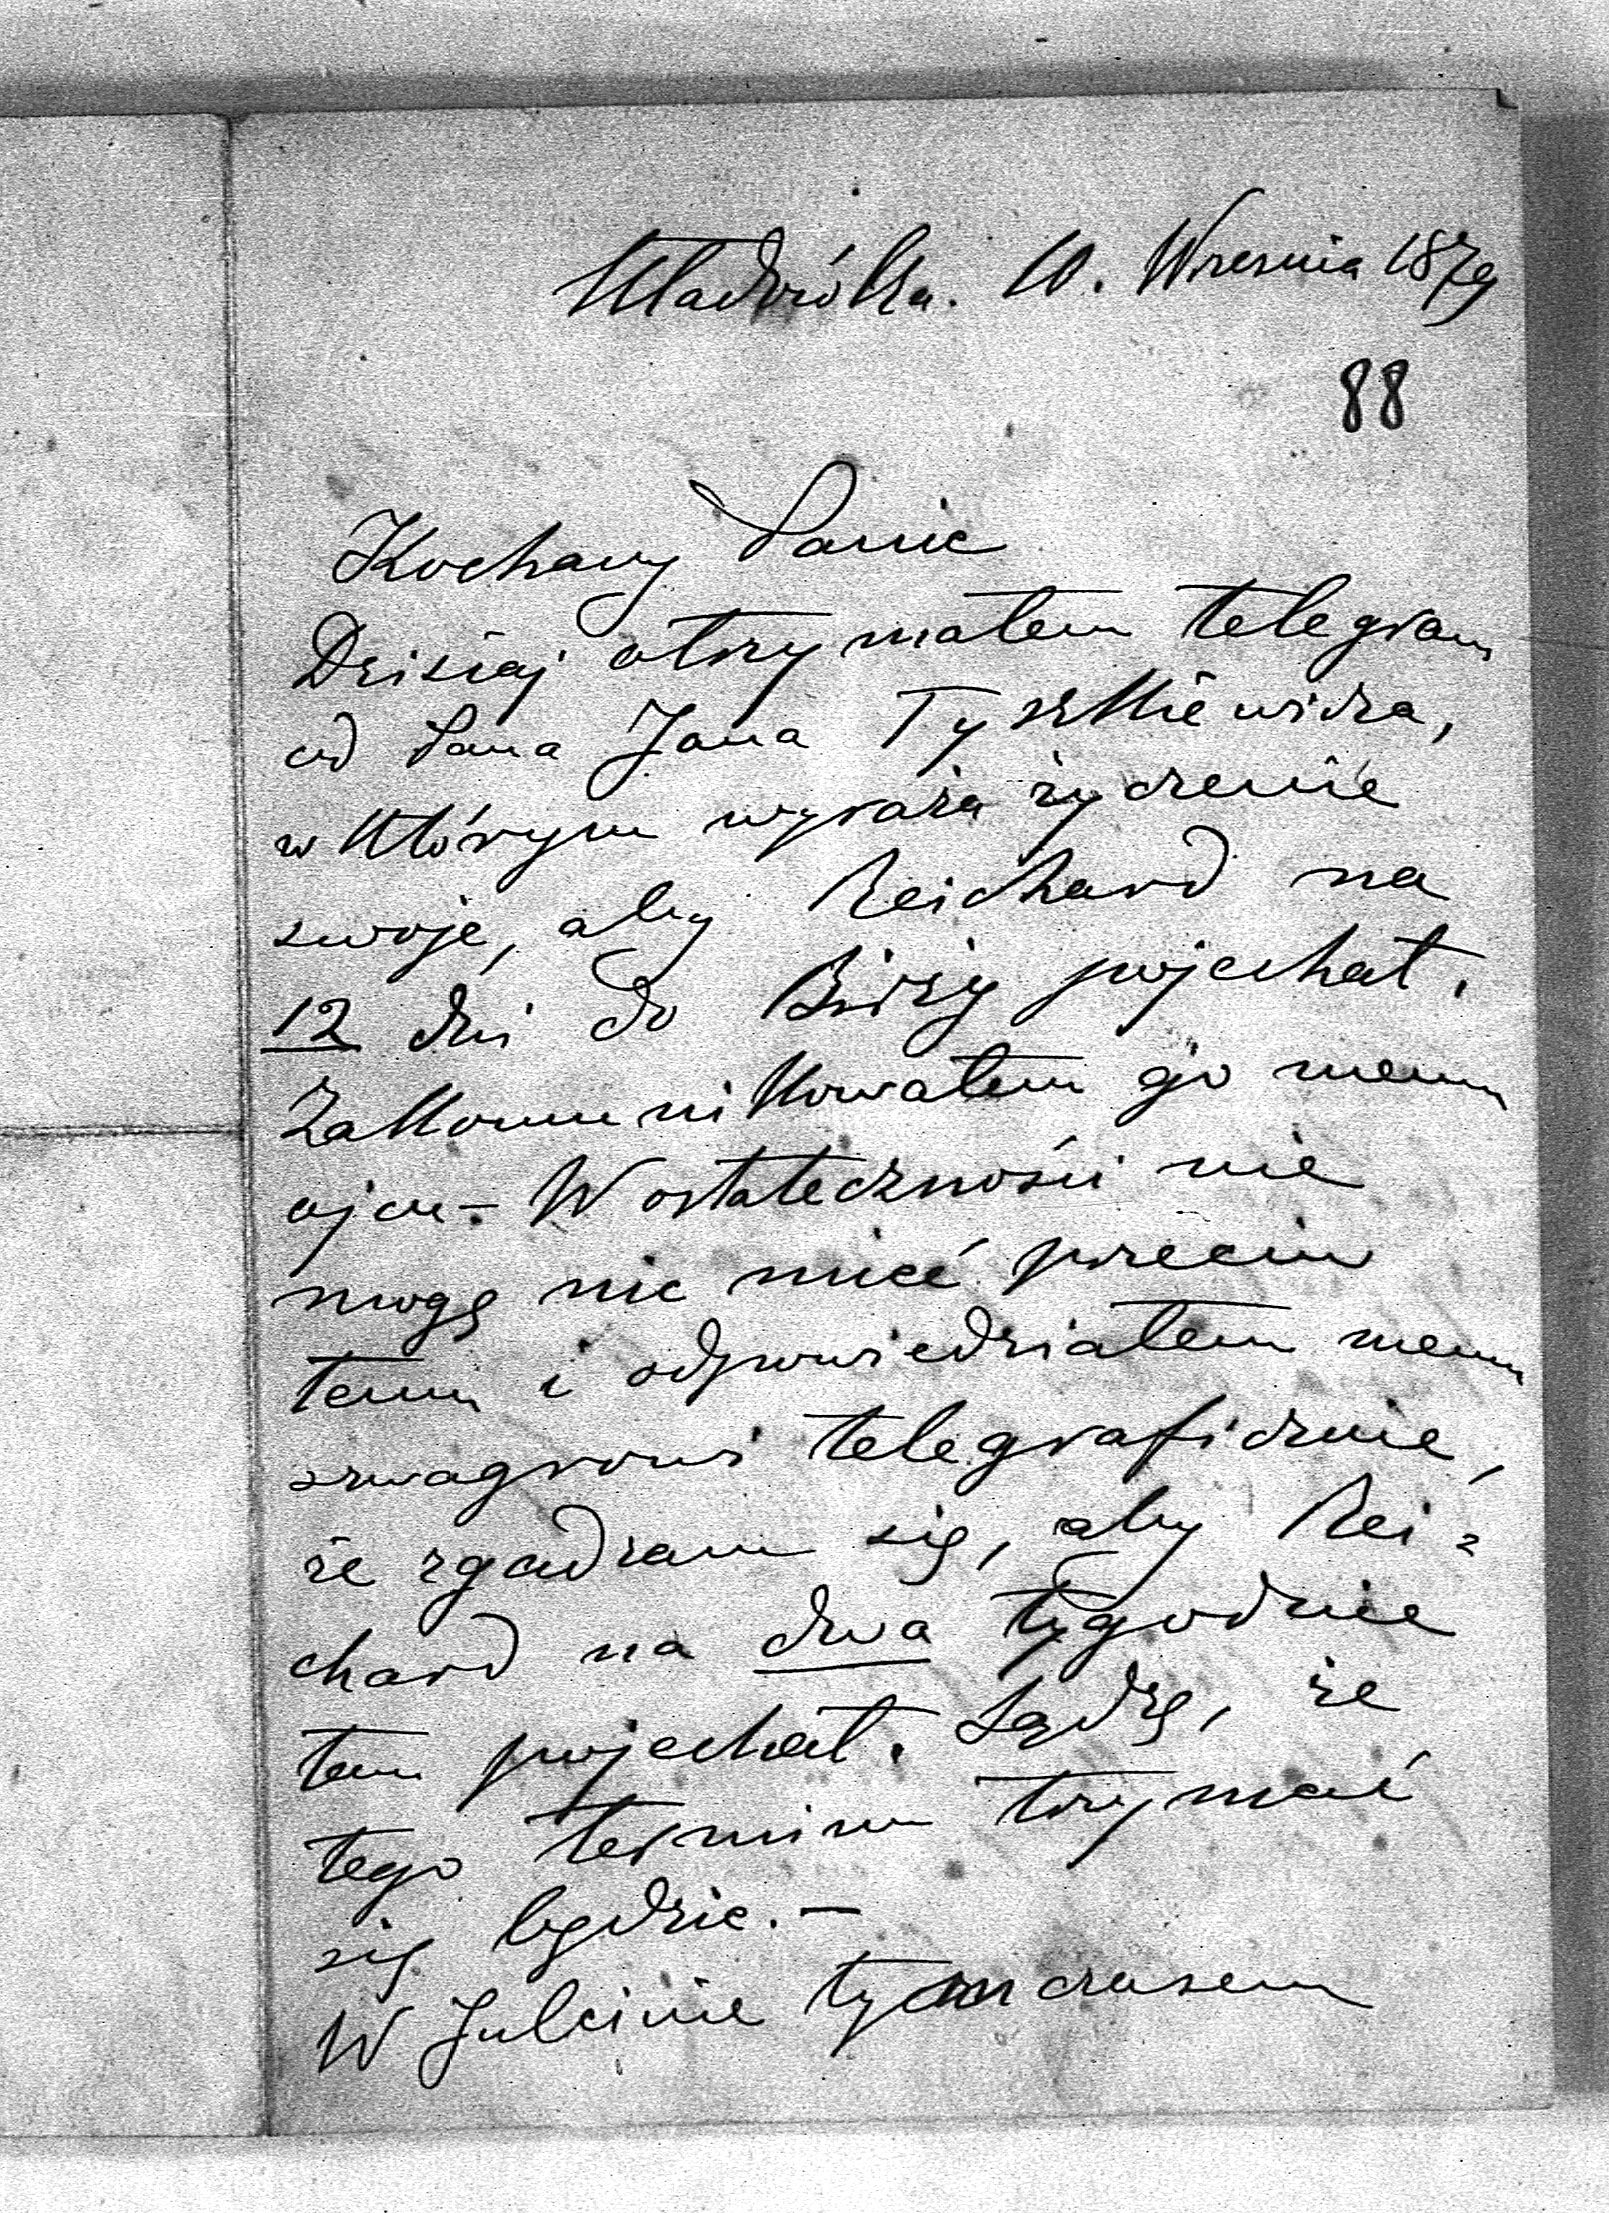 10. Września 1879
88
Kochany Panie
Dzisiaj otrzymałem telegram
od Pana Jana Tyszkiewicza,
w którym wyraża życzenie
swoje, aby Reichard na
12 dni do Birży pojechał.
Zakomunikowałem go memu
ojcu – W ostateczności nie
mogę nic mieć przeciw
temu i odpowiedziałem memu
szwagrowi telegraficznie,
że zgadzam się, aby Rei=
chard na dwa tygodnie
tam pojechał. Sądzę, że
tego terminu trzymać
się będzie. –
W Julcinie tymczasem